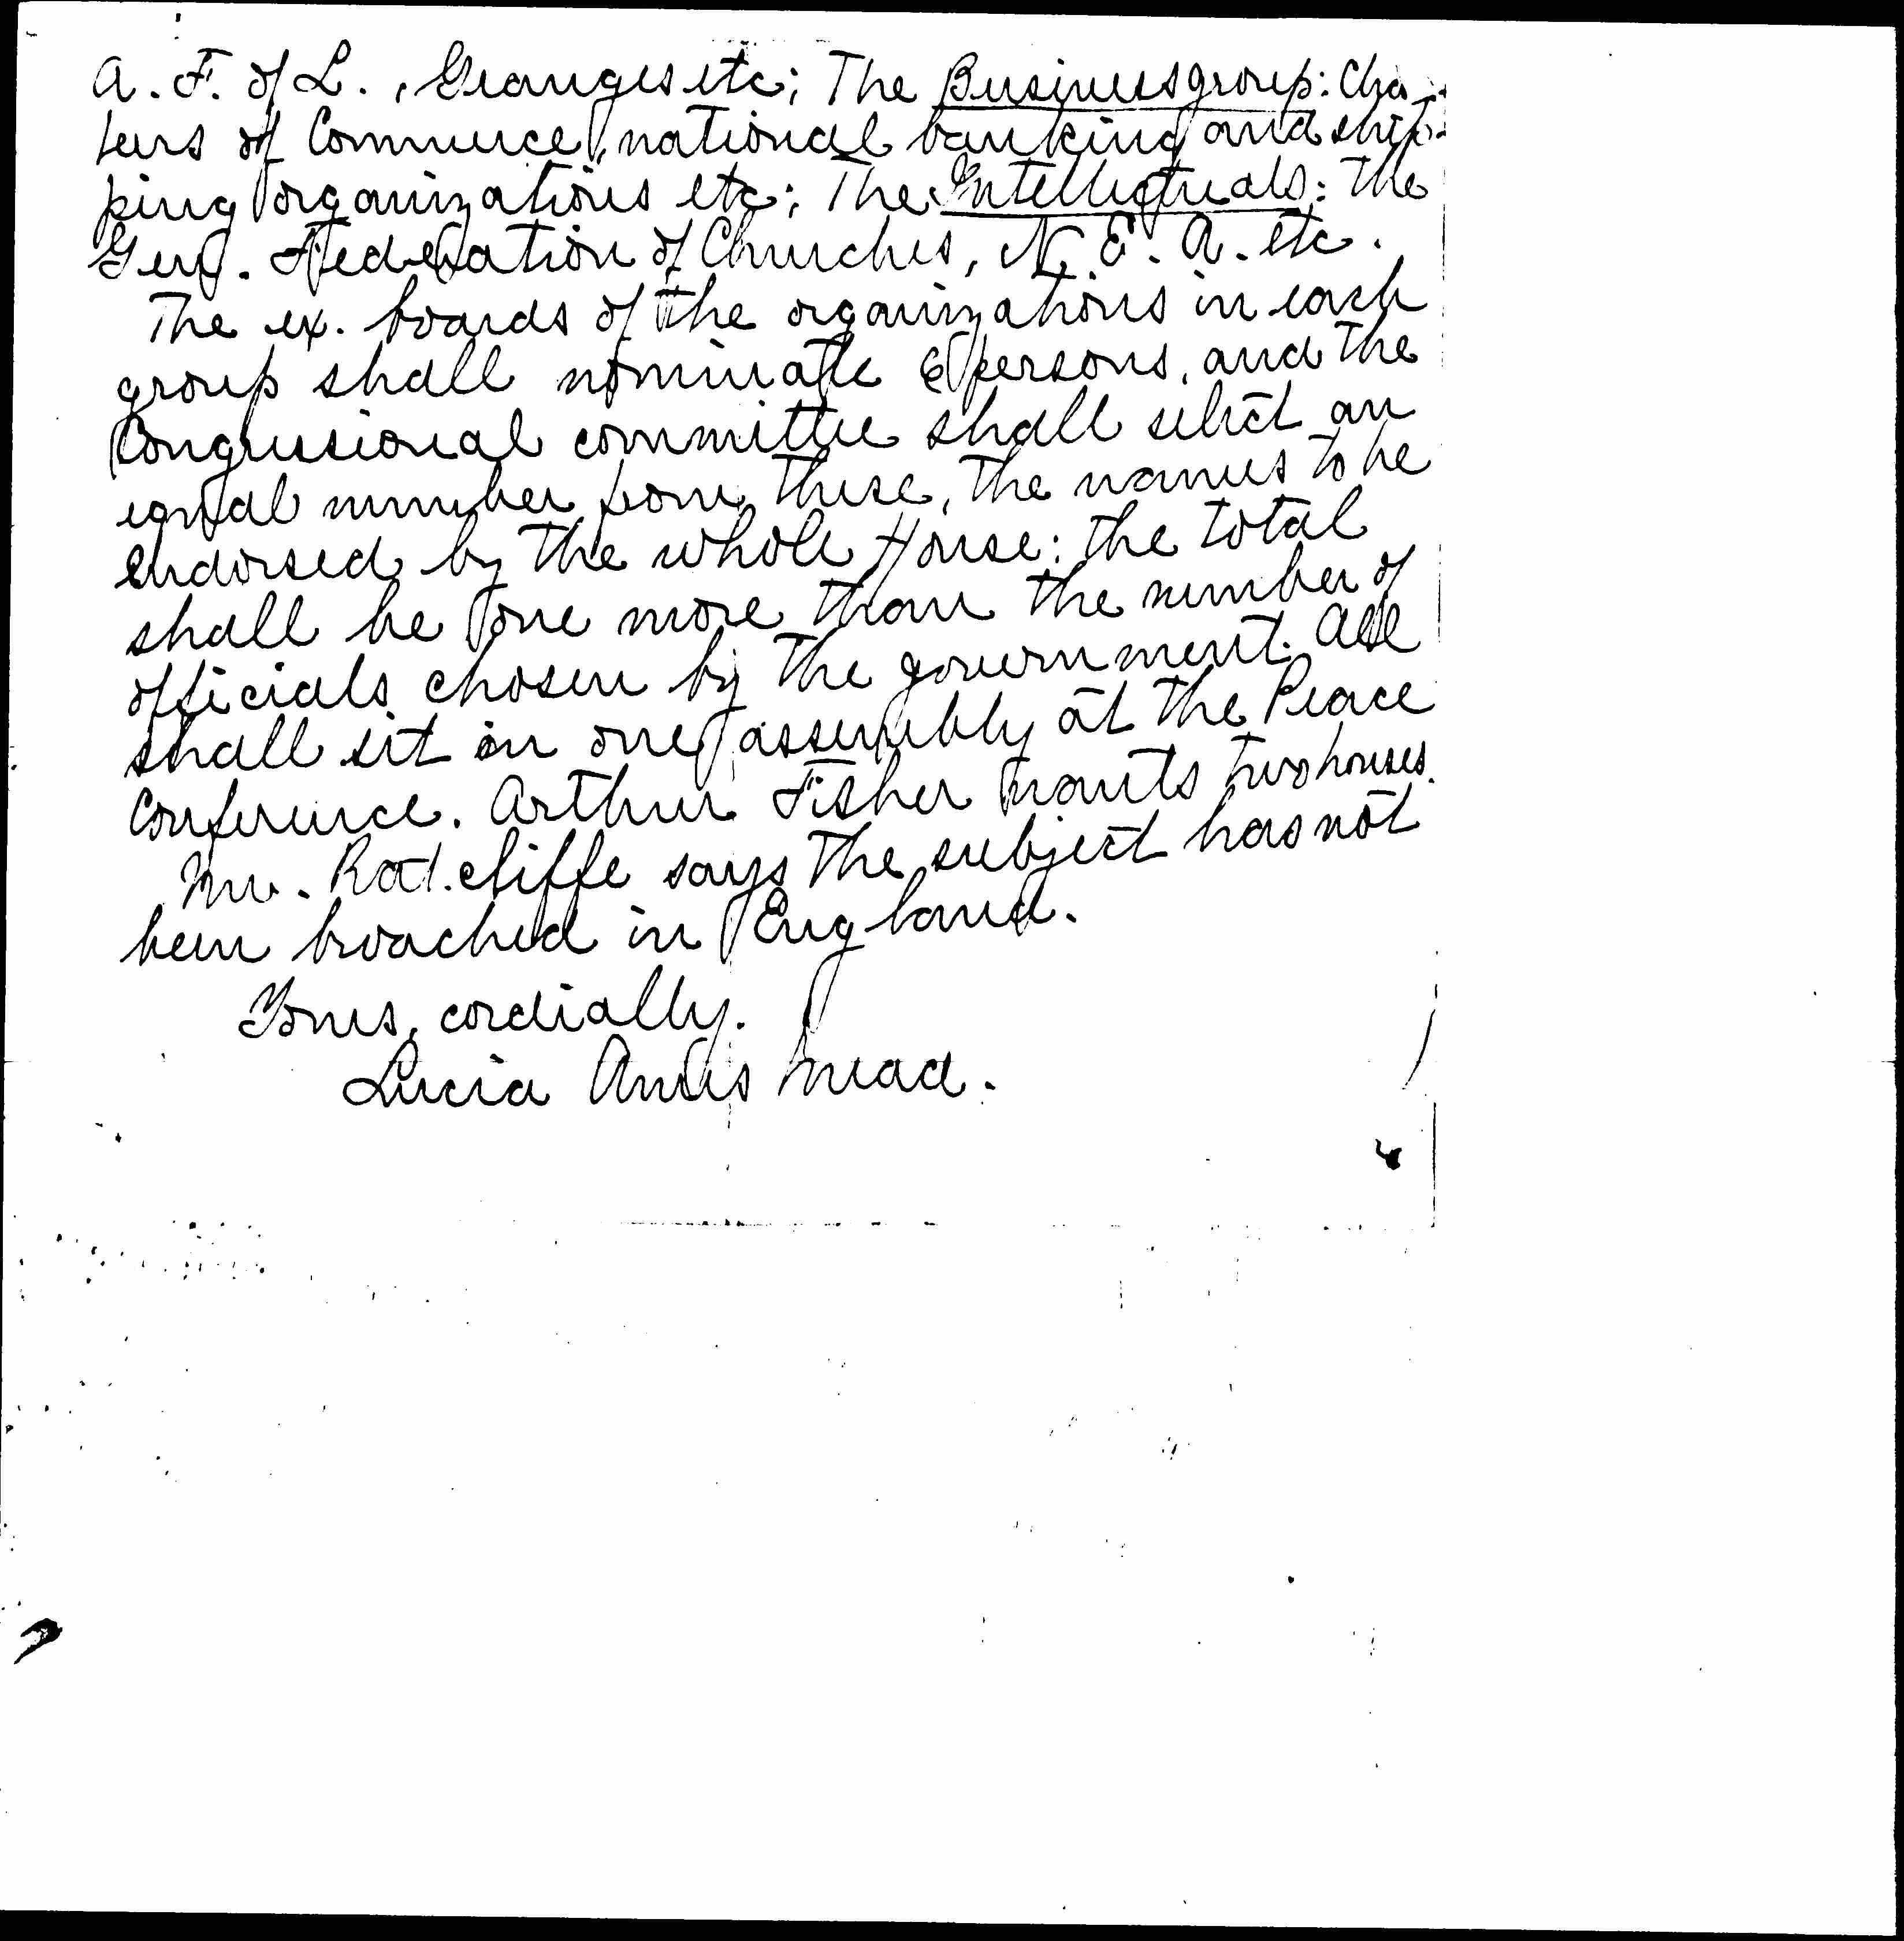 A. F. of L., Granges etc; The Business group: Cham-
bers of Commerce, national banking and ship-
ping organizations etc; The Intellectuals: The
Gen. Federation of Churches, N. E. A. etc.
The ex. boards of the organizations in each
group shall nominate 6 persons, and the
Congressional committee shall select an
equal number from these, the names to be
endorsed by the whole House: the total
shall be one more than the number of
officials chosen by the government. All
shall sit in one assembly at the Peace
Conference. Arthur Fisher wants two houses.
Mr. Ratcliffe says the subject has not
been broached in England.
Yours, cordially.
Lucia Ames Mead.